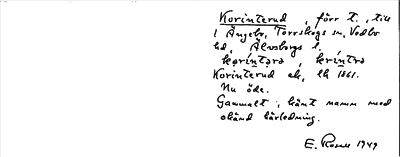 Korinterud, förr t., till
1 Ängebo, Torrskogs sn, Vedbo
hd, Älvsborgs l.
korintərə, krintrə
Korinterud ek, lk 1861.
Nu öde.
Gammalt, känt namn med
okänd härledning.
E. Rosell 1949